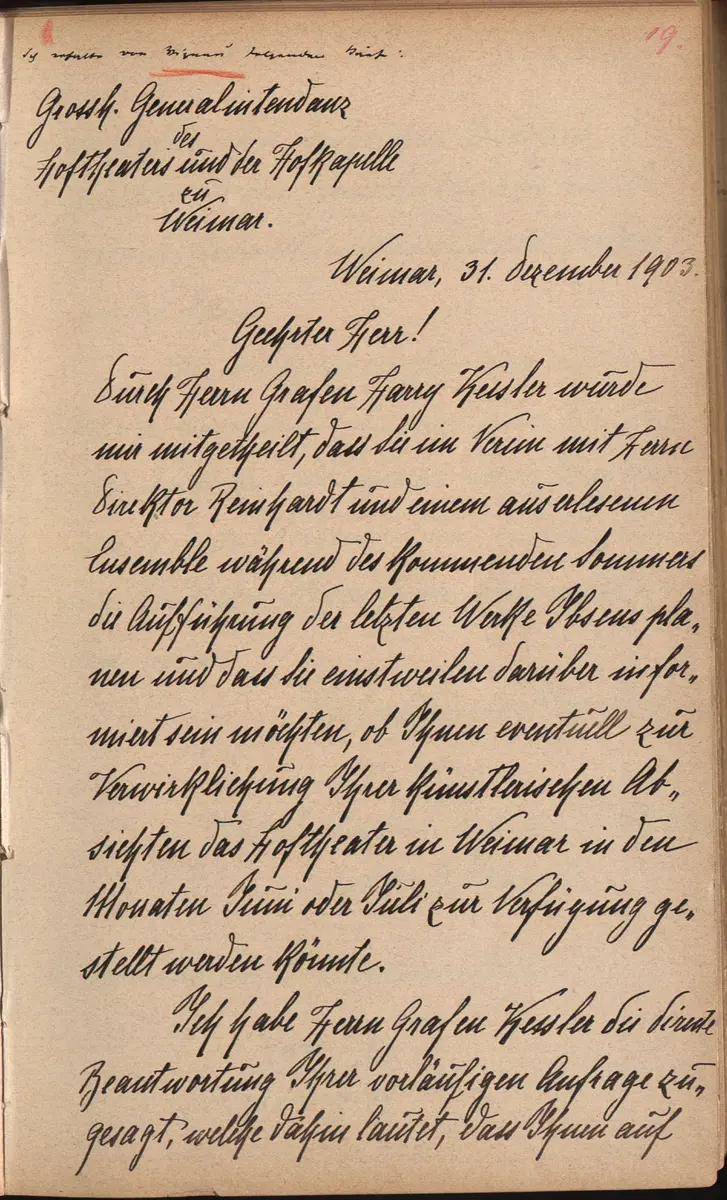 19.
Ich erhalte von Vignau folgenden Brief:
Grossh. Generalintendanz
des
Hoftheaters und der Hofkapelle
zu
Weimar.
Weimar, 31. Dezember 1903.
Geehrter Herr!
Durch Herrn Grafen Harry Kessler wurde
mir mitgetheilt, dass Sie im Verein mit Herrn
Direktor Reinhardt und einem auserlesenen
Ensemble während des kommenden Sommers
die Aufführung der letzten Werke Ibsens pla„
nen und dass Sie einstweilen darüber infor„
miert sein möchten, ob Ihnen eventuell zur
Verwirklichung Ihrer künstlerischen Ab„
sichten das Hoftheater in Weimar in den
Monaten Juni oder Juli zur Verfügung ge„
stellt werden könnte.
Ich habe Herrn Grafen Kessler die direkte
Beantwortung Ihrer vorläufigen Anfrage zu„
gesagt, welche dahin lautet, dass Ihnen auf